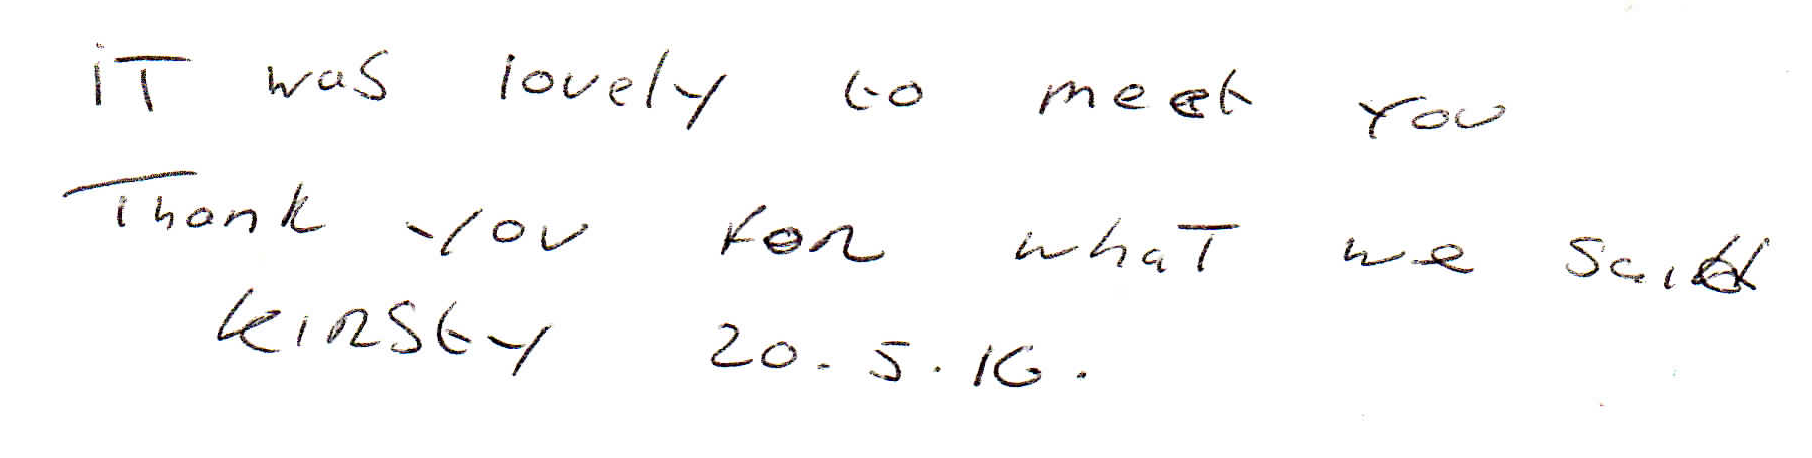 iT was lovely to meet you
Thank you for whaT we said
KIRSty 20.5.16.